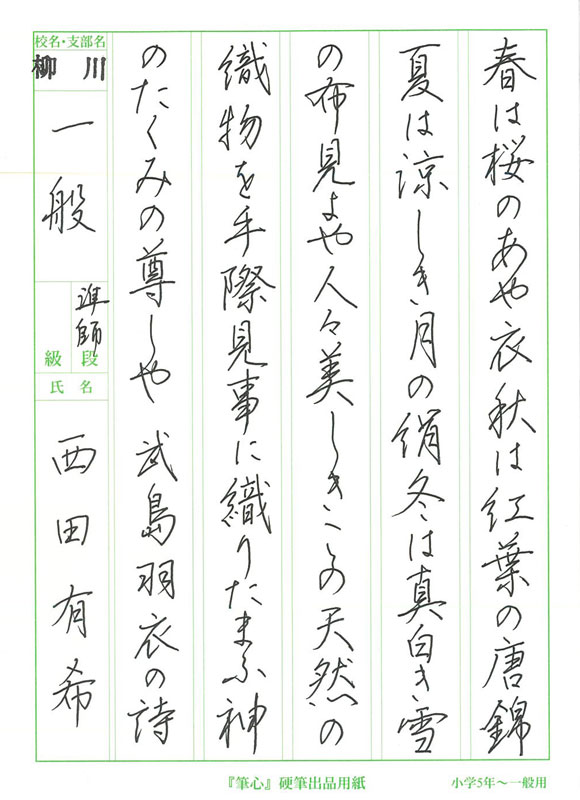 春は桜のあや衣秋は紅葉の唐錦
夏は涼しき月の絹冬は真白き雪
の布見よや人々美しきこの天然の
織物を手際見事に織りたまふ神
のたくみの尊しや 武島羽衣の詩
校名・支部名
柳川
一般
準師
段級
氏名
西田有希
『筆心』硬筆出品用紙
小学5年〜一般用